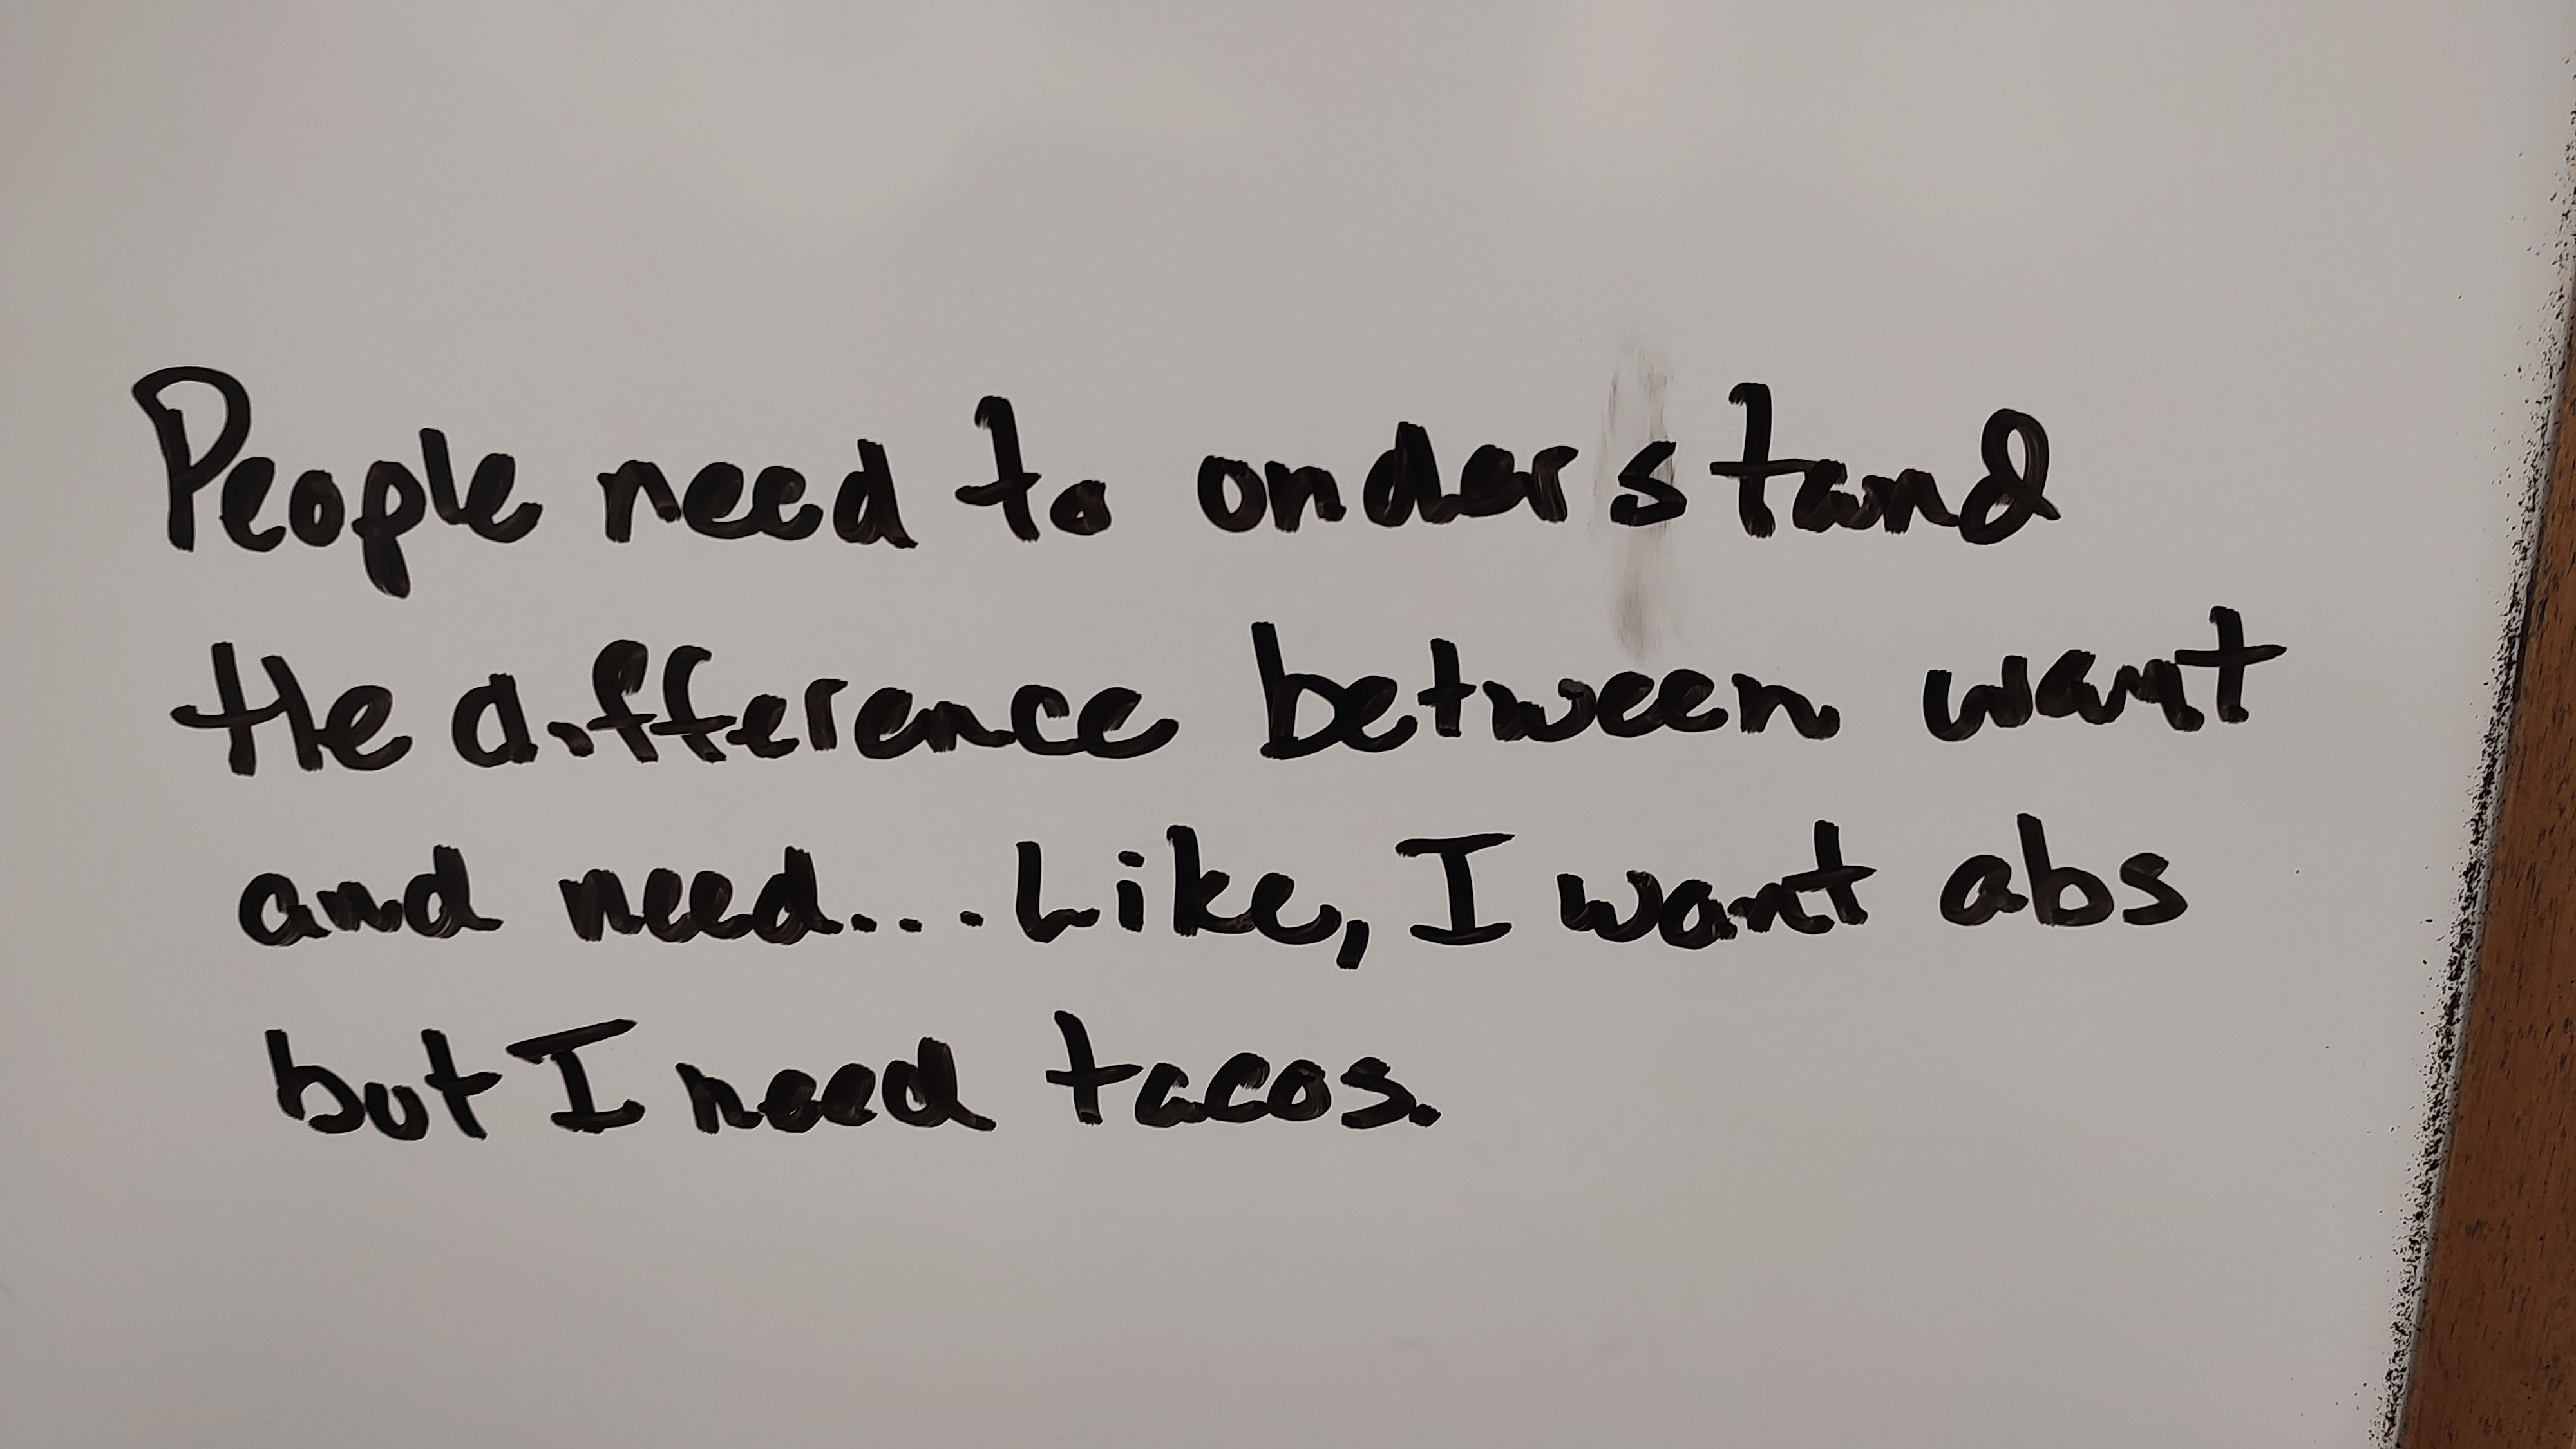 People need to understand
the difference between want
and need... Like, I want abs
but I need tacos.